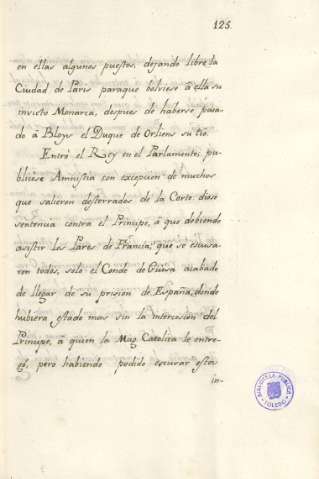 125.
en ellas algunos puestos, dejando libre la
Ciudad de Paris paraque bolviese à ella su
invicto Monarca, despues de haberse pasa-
do à Bloys el Duque de Orliens su tio.
Entró el Rey en el Parlamento; pu-
blicóse Amnistia con excepcion de muchos
que salieron desterrados de la Corte: dióse
sentencia contra el Principe, à que debiendo
asistir los Pares de Francia, que se escusa-
ron todos, solo el Conde de Guisa acabado
de llegar de su prision de España, donde
hubiera estado mas sin la intercesion del
Principe, à quien la Mag. Catolica le entre-
gó, pero habiendo podido escusar esta
in-
BIBLIOTECA PUBLICA
TOLEDO